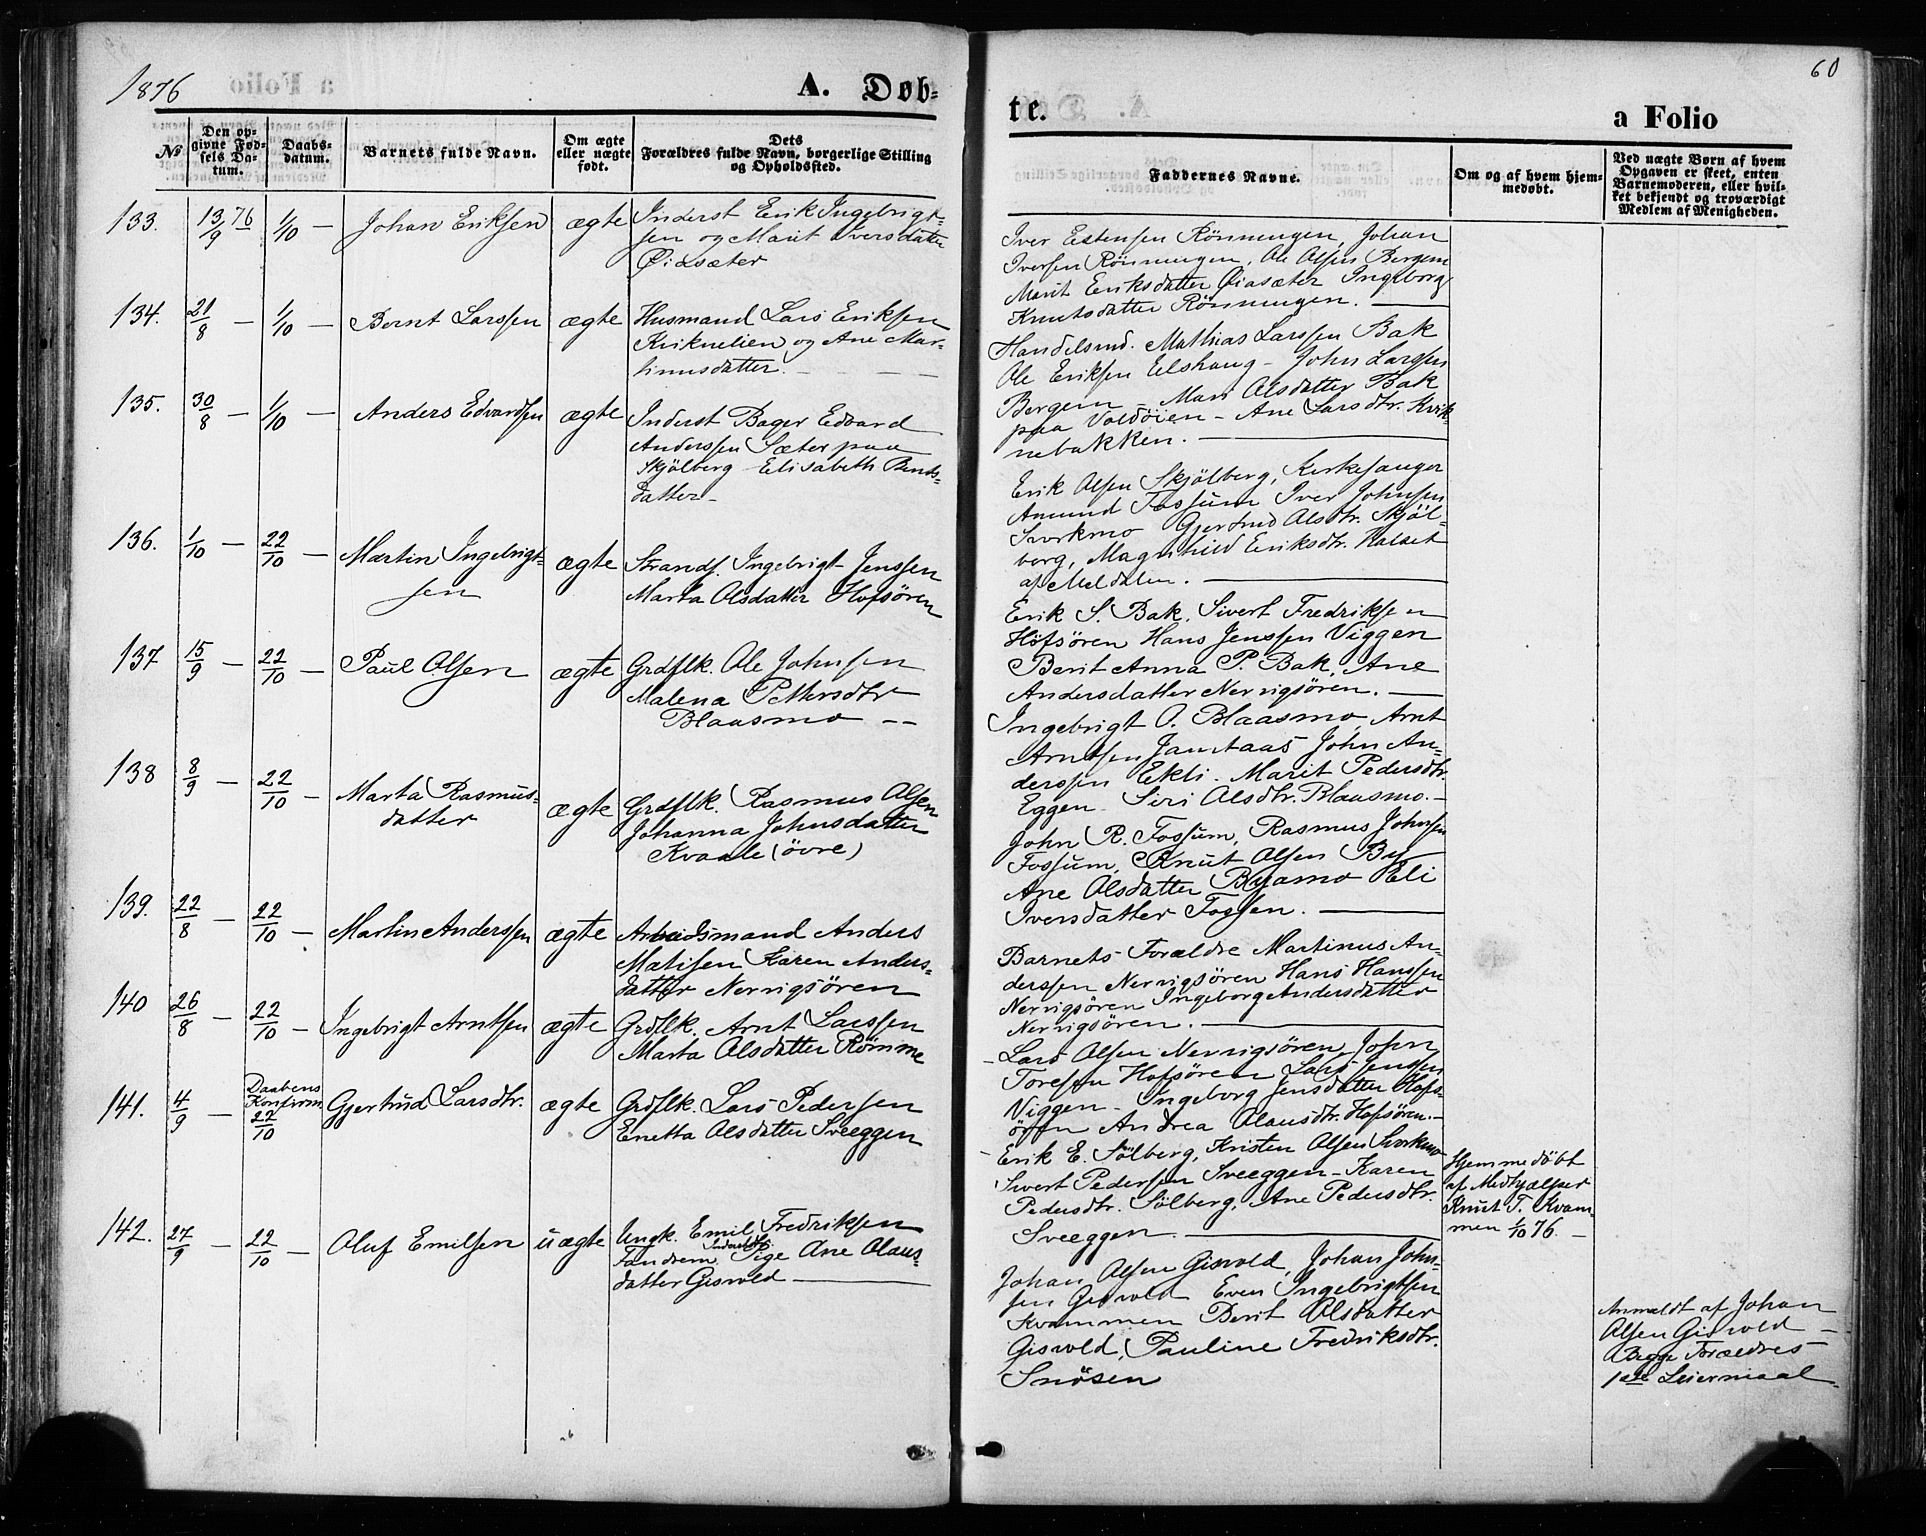 1876
A. Døb-
№
Den op-
givne Fød-
sels Da-
tum.
Daabs-
datum.
Barnets fulde Navn.
Om ægte
eller uægte
født.
Dets
Forældres fulde Navn, borgerlige Stilling
og Opholdssted.
133.
13/9 76
1/10 —
Johan Eriksen
ægte
Inderst Erik Ingebrigt-
sen og Marit Iversdatter
Øiasæter
134.
21/8 —
1/10 —
Bernt Larssen
ægte
Husmand Lars Eriksen
Kviknelien og Ane Mar-
tinusdatter.
135.
30/8 —
1/10 —
Anders Edvardsen
ægte
Inderst Bager Edvard
Anderssen Sæter paa
Skjölberg Elisabeth Bents-
datter —
136.
1/10 —
22/10 —
Martin Ingebrigt-
sen
ægte
Strands. Ingebrigt Jenssen
Marta Olsdatter Hofsören
137
15/9 —
22/10 —
Paul Olsen
ægte
Grdflk. Ole Johnsen
Malena Pettersdtr
Blaasmo — —
138
8/9 —
22/10 —
Marta Rasmus-
datter
ægte
Grdflk. Rasmus Olsen
Johanna Johnsdatter
Kvaale (övre)
139.
22/8 —
22/10 —
Martin Anderssen
ægte
Arbeidsmand Anders
Matisen Karen Anders-
datter Nervigsören
140
26/8 —
22/10 —
Ingebrigt Arntsen
ægte
Grdflk. Arnt Larssen
Marta Olsdatter Römme
141.
4/9
Daabens
Konfirm
22/10
Gjertrud Larsdtr.
ægte
Grdflk. Lars Pedersen
Enetta Olsdatter Sveeggen
142.
27/9 —
22/10 —
Oluf Emilsen
uægte
Ungk. Emil Fredriksen
Fandrem Pige Ane Olaus-
datter Gisvold —
60
te.
a Folio
Faddernes Navne.
Om og af hvem hjem-
medøbt.
Ved uægte Børn af hvem
Opgaven er skeet, enten
Barnemoderen, eller hvil-
ket bekjendt og troværdigt
Medlem af Menigheden.
Iver Estensen Rönningen, Johan
Iversen Rönningen, Ole Olsen Bergem
Marit Eriksdatter Øiasæter Ingeborg
Knutsdatter Rönningen. —
Handelsmd. Mathias Larssen Bak
Ole Eriksen Elshaug — John Larssen
Bergem — Mari Olsdatter Bak
paa Voldöien — Ane Larsdtr. Kvik-
nebakken. —
Erik Olsen Skjölberg, Kirkesanger
Amund Fossum Iver Johnsen
Svorkmo Gjertrud Olsdtr. Skjöl-
berg, Magnhild Eriksdtr. Halset
af Meldalen. —
Erik S. Bak, Sivert Fredriksen
Hofsören Hans Jenssen Viggen
Berit Anna P. Bak, Ane
Andersdatter Nervigsören. —
Ingebrigt O. Blaasmo, Arnt
Arntsen Jamtaas John An-
derssen Ekli. Marit Pedersdtr.
Eggen — Siri Olsdtr. Blaasmo. —
John R. Fossum, Rasmus Johnsen
Fossum, Knut Olsen By
Ane Olsdatter Byamo Eli
Iversdatter Fossen. —
Barnets Forældre Martinus An-
derssen Nervigsören Hans Hanssen
Nervigsören Ingeborg Andersdatter
Nervigsören. —
Lars Olsen Nervigsören, John
Toresen Hofsören Lars Jenssen
Viggen — Ingeborg Jensdatter Hofs-
ören Andrea Olausdtr. Hofsören. —
Erik E. Sölberg, Kristen Olsen Svorkmo
Sivert Pedersen Sveeggen — Karen
Pedersdtr. Sölberg, Ane Pedersdtr.
Sveeggen —
Hjemmedöbt
af Medhjælper
Knut T. Kvam-
men 1/10 76. —
Johan Olsen Gisvold, Johan John-
sen Gisvold Even Ingebrigtsen
Kvammen Berit Olsdatter
Gisvold, Pauline Fredriksdtr.
Snösen
Anmeldt af Johan
Olsen Gisvold —
Begge Forældres
1ste Leiermaal.